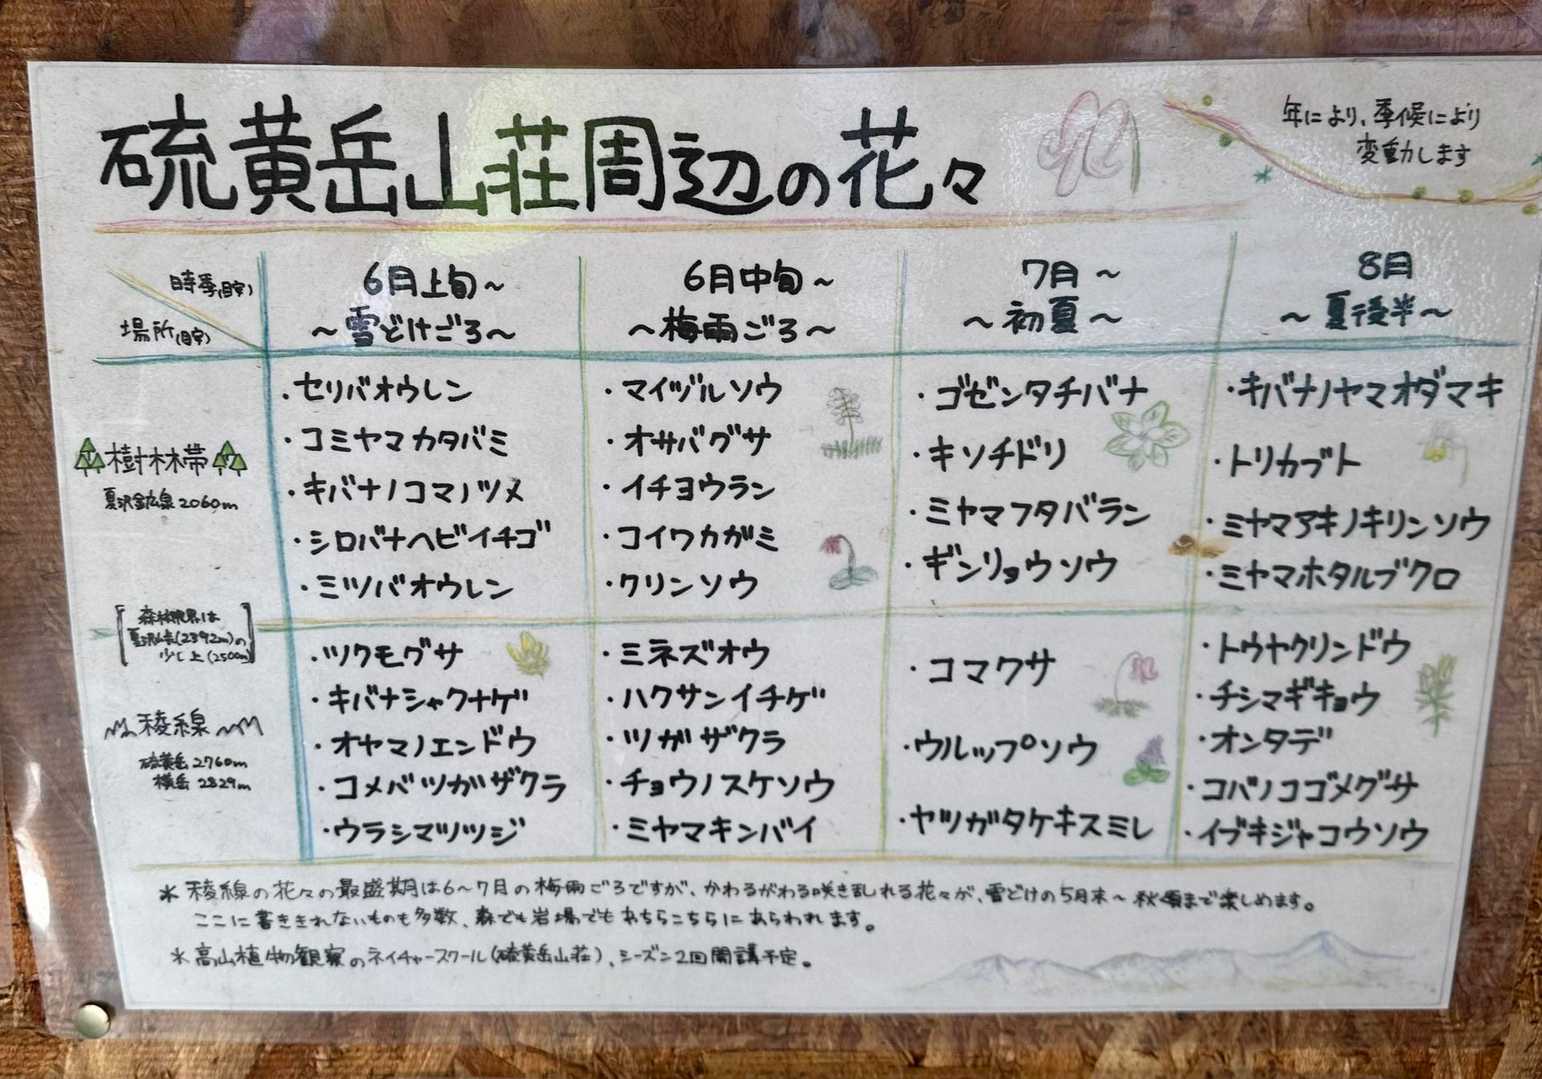 硫黄岳山荘周辺の花々
年により、季候により
変動します
時季(目安)
場所(目安)
6月上旬～
～雪どけごろ～
6月中旬～
～梅雨ごろ～
7月～
～初夏～
8月
～夏後半～
樹林帯
夏沢鉱泉 2060m
・セリバオウレン
・コミヤマカタバミ
・キバナノコマノツメ
・シロバナヘビイチゴ
・ミツバオウレン
・マイヅルソウ
・オサバグサ
・イチヨウラン
・コイワカガミ
・クリンソウ
・ゴゼンタチバナ
・キソチドリ
・ミヤマフタバラン
・ギンリョウソウ
・キバナノヤマオダマキ
・トリカブト
・ミヤマアキノキリンソウ
・ミヤマホタルブクロ
森林限界は
夏沢峠(2392m)の
少し上(2500m)
稜線
硫黄岳 2760m
横岳 2829m
・ツクモグサ
・キバナシャクナゲ
・オヤマノエンドウ
・コメバツガザクラ
・ウラシマツツジ
・ミネズオウ
・ハクサンイチゲ
・ツガザクラ
・チョウノスケソウ
・ミヤマキンバイ
・コマクサ
・ウルップソウ
・ヤツガタケキスミレ
・トウヤクリンドウ
・チシマギキョウ
・オンタデ
・コバノコゴメグサ
・イブキジャコウソウ
＊稜線の花々の最盛期は6～7月の梅雨ごろですが、かわるがわる咲き乱れる花々が、雪どけの5月末～秋頃まで楽しめます。
ここに書ききれないものも多数、森でも岩場でもあちらこちらにあらわれます。
＊高山植物観察のネイチャースクール(硫黄岳山荘)、シーズン2回開講予定。